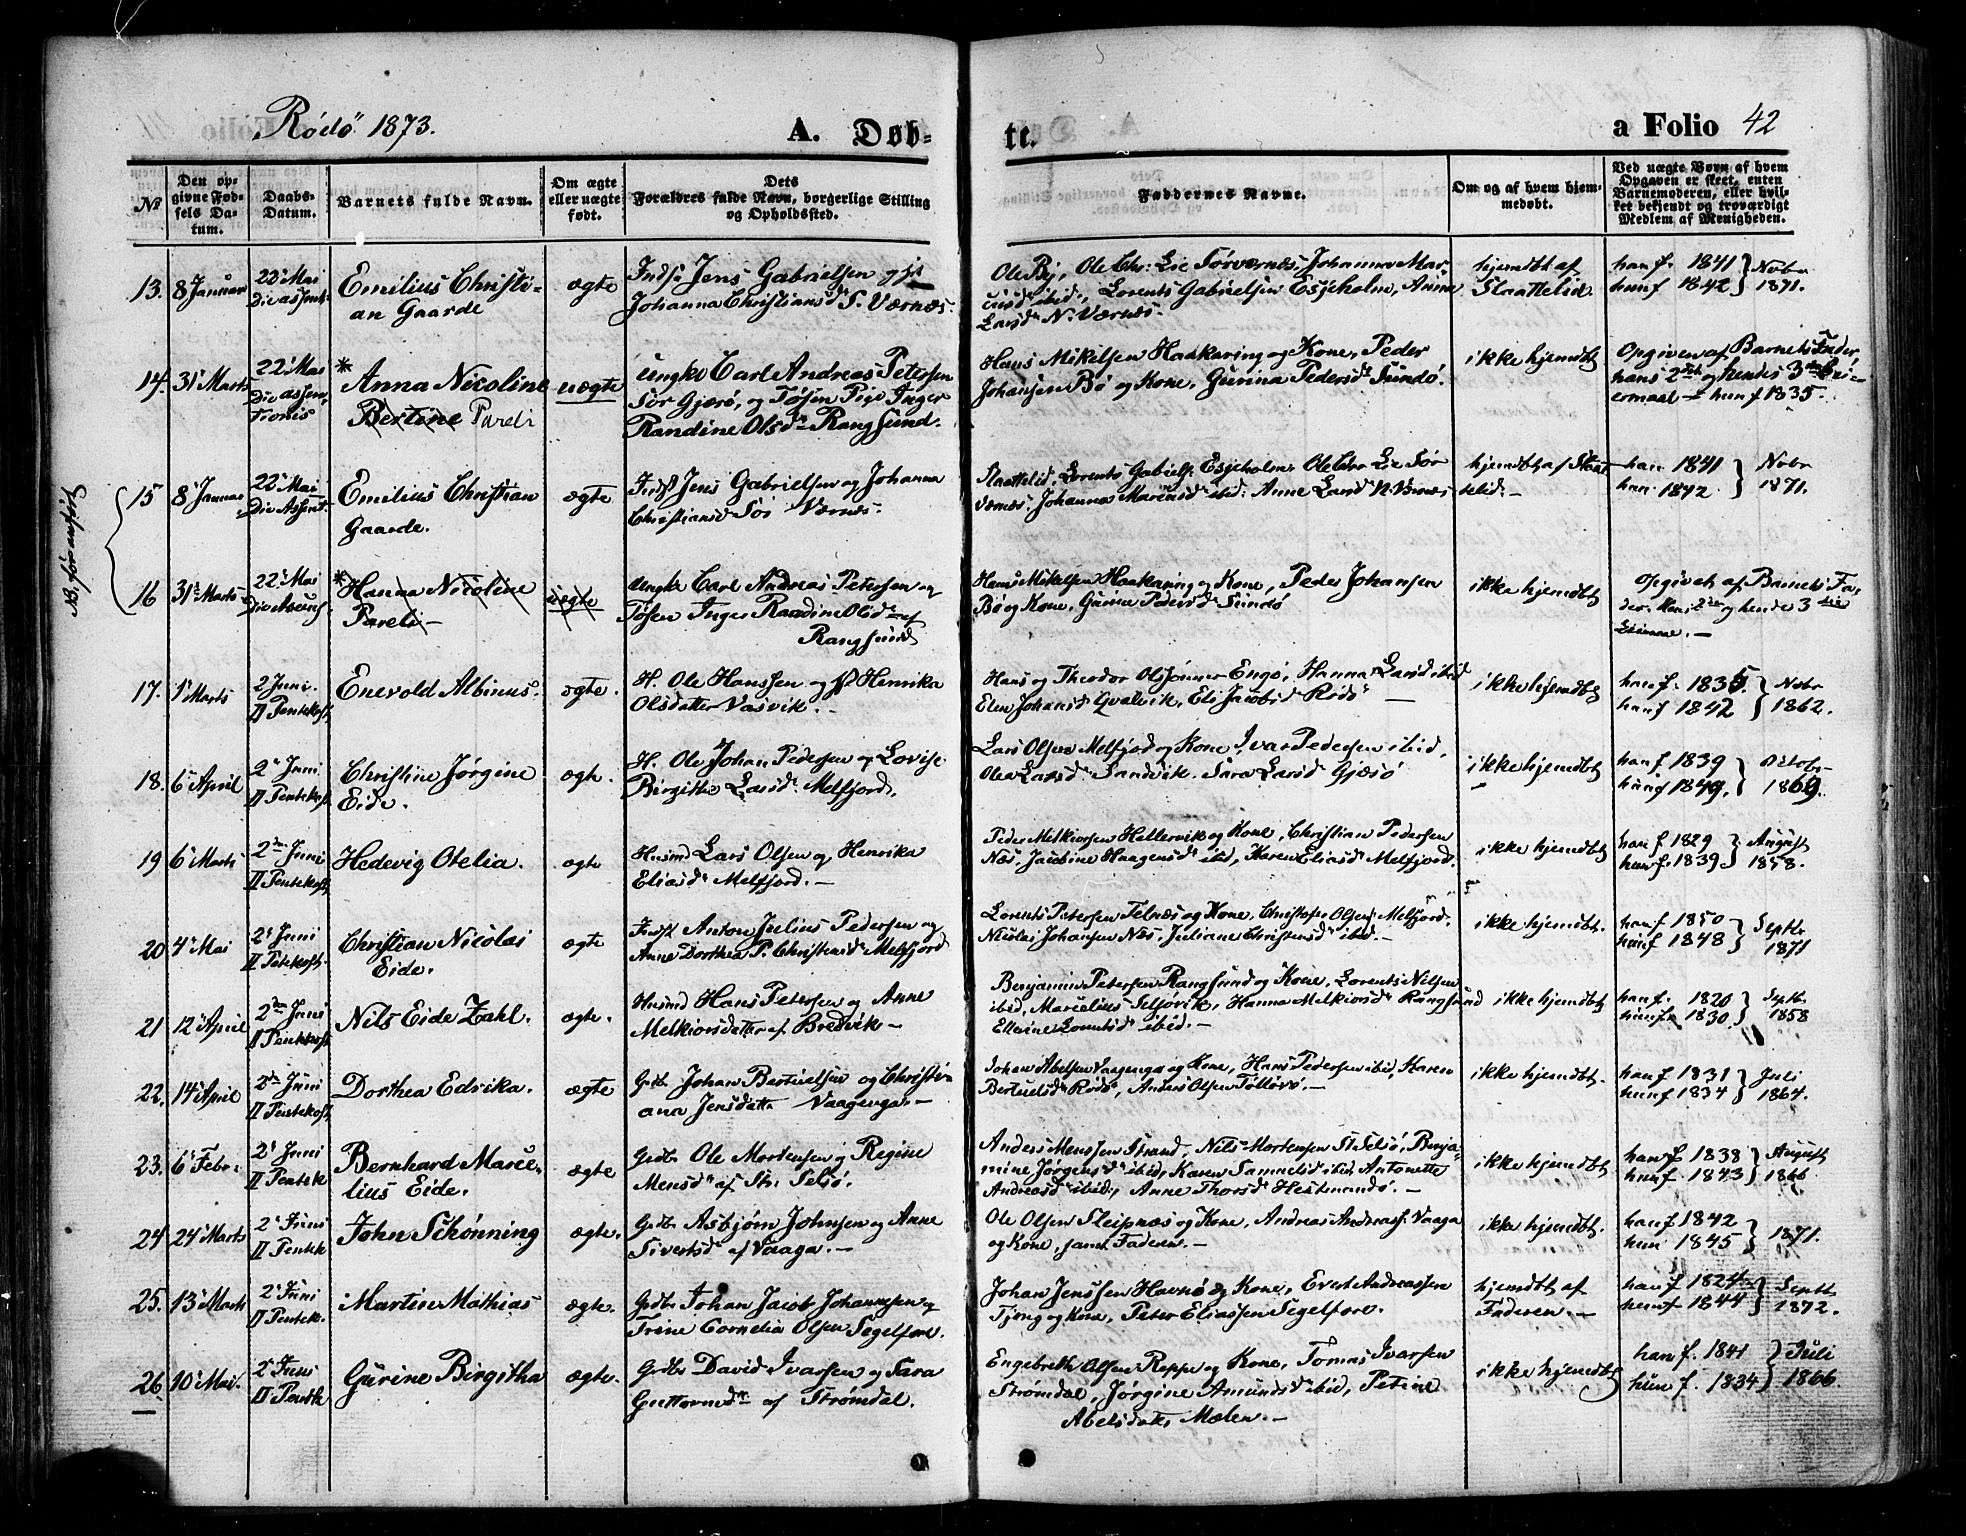 Rødø 1873.
A. Døb-
te.
a Folio 42
No
Den op-
givne Fød-
sels Da-
tum.
Daabs-
Datum.
Barnets fulde Navn.
Om ægte
eller uægte
født.
Dets
Forældres fulde Navn, borgerlige Stilling
og Opholdssted.
Faddernes Navne.
Om og af hvem hjem-
medøbt.
Ved uægte Børn af hvem
Opgaven er skeet, enten
Barnemoderen, eller hvil-
ket bekjendt og troværdigt
Medlem af Menigheden.
13. 8 Januar
22 Mai
Emilius Christi-
an Gaarde
ægte
Inds. Jens Gabrielsen og
Johanna Christiansd. S. Værnes.
Ole Bj, Ole Chr. Lie Sørværnes, Johanna Mar-
ibid, Lorents Gabrielsen Esjeholm, Anne
Larsd N. Værnes.
hjemdbt af
Slaattelid
han f. 1841
hun f 1842
Novbr
1871.
14. 31 Marts
22 Mai
* Anna Nicoline
Bertine Pareli
uægte
ungk. Carl Andreas Petersen
Sør Gjerø, og Tøsen Pige Inger
Randine Olsd. Rangsund.
Hans Mikelsen Haakaring og Kone, Peder
Johansen Bø og Kone, Gurina Pedersd Sundø.
ikke hjemdbt
Opgiven af Barnets Fader,
hans 2det og hendes 3die Lei-
ermaal - hun f 1835.
15 8 Januar
22 Mai
Emilius Christian
Gaarde.
ægte
Inds Jens Gabrielsen og Johanna
Christiansd Sør Værnes.
Slaattelid, Lorents Gabriels. Esjeholm Ole Chr Lie Sør
Værnes, Johanna Mariusd ibid: Anne Larsd N. Værnes
hjemdbt af Slaat
telid. -
han 1841
hun 1842.
Novbr
1871.
16 31 Marts
22 Mai
* Hanna Nicoline
Pareli -
uægte
Ungk. Carl Andreas Petersen og
Tøsen Inger Randine Olsd af
Rangsund
Hans Mikelsen Haakaring og Kone, Peder Johansen
Bø og Kone, Gurine Pedersd Sundø
ikke hjemdbt
Opgivet af Barnets Fa-
der. Hans 2det og hendes 3die
Leiermaal. -
17. 1 Marts
2 Juni.
II Pentekost
Enevold Albinus.
ægte.
H. Ole Hanssen og Henrika
Olsdatter Vasvik. -
Hans og Theodor Olsønner Engø, Hanna Larsd ibid
Elen Johansd Qvalvik, Eli Jacobsd Rødø -
ikke hjemdbt
han f. 1835.
hun f 1842
Novbr
1862.
18. 6 April
2 Juni
II Pentekost
Christine Jørgine
Eide.
ægte.
H. Ole Johan Pedersen og Lovise
Birgitte Larsd. Melfjord.
Lars Olsen Melfjord og Kone, Ivar Pedersen ibid.
Olea Larsd Sandvik. Sara Larsd Gjesø
ikke hjemdbt
han f 1839
hun f 1849.
Octobr
1869.
19 6 Marts
2den Juni
II Pentekost
Hedevig Otelia.
ægte
Husmd Lars Olsen og Henrika
Eliasd Melfjord. -
Peder Melkiorsen Hellervik og Kone, Christian Pedersen
Næs, Jacobine Haagensd ibid, Karen Eliasd Melfjord.
ikke hjemdbt
han f 1829
hun f. 1839
August
1858.
20 4 Mai
2 Juni
II Petekost.
Christian Nicolai
Eide.
ægte
Inds Anton Julius Pedersen og
Anne Dorthea P. Christensd Melfjord
Lorents Petersen Telnæs og Kone, Christofer Olsen Melfjord.
Nicolai Johansen Næs. Juliane Christensd ibid. -
ikke hjemdbt.
han f 1850
hun f 1848
Septbr
1871
21 12 April
2den Juni
II Pentekost
Nils Eide Zahl.
ægte.
Husmd Hans Petersen og Anne
Melkiorsdatter af Bredvik -
Benjamin Petersen Rangsund og Kone, Lorents Nilsen
ibid, Marcelius Selsøvik, Hanna Melkiorsd Rangsund
Ellevine Lorentsd ibid. -
ikke hjemdbt
han f. 1820
hun f. 1830
Septbr
1858
22. 14 April
2den Juni
II Pentekost
Dorthea Edvika.
ægte
Grdbr Johan Bertuelsen og Christi-
ana Jensdatter Vaagenga. -
Johan Abelsen Vaagenga og Kone, Hans Pedersen ibid, Karen
Bertuelsd Rødø, Anders Olsen -
ikke hjemdbt.
han f 1831
hun f 1834
Juli
1864.
23. 6 Febr.
2 Juni
II Pentek
Bernhard Marce-
lius Eide.
ægte
Grdbr Ole Mortensen og Regine
Mensd af Str. Selsø.
Anders Menssen Strand, Nils Mortensen St Selsø, Benja-
mine Jørgensd ibid, Karen Samuelsd ibid, Antonette
Andreasd ibid, Anne Thorsd Hestmandø. -
ikke hjemdbt
han f 1838
hun f. 1843
August
1866
24 24 Marts
2 Juni
II Pentek
John Schønning
ægte.
Grdbr Asbjørn Johnsen og Anne
Sivertsd af Vaaga. -
Ole Olsen Sleipnæs og Kone, Andreas Andreass. Vaaga
og Kone, samt Faderen. -
ikke hjemdbt.
han f 1842
hun 1845
1871.
25. 13 Marts
2 Juni
II Pentek.
Martin Mathias
ægte.
Grdbr Johan Jacob Johannesen og
Trine Cornelia Olsen Segelfore.
Johan Jenssen Havnø og Kone, Evert Andreassen
Tjong og Kone, Peter Eliassen Segelfore.
hjemdbt af
Faderen. -
han f 1824
hun f 1844
Septbr
1872.
26 10 Mai.
2 Juni
II Pentek
Gurine Birgitha
ægte.
Grdbr David Ivarsen og Sara
Guttormsdr af Strømdal.
Engebreth Olsen Reppe og Kone, Tomas Ivarsen
Strømdal, Jørgine Amundsd ibid, Petine
Abelsdatter Mælen. -
ikke hjemdbt
han f. 1841
hun f. 1834
Juli
1866.